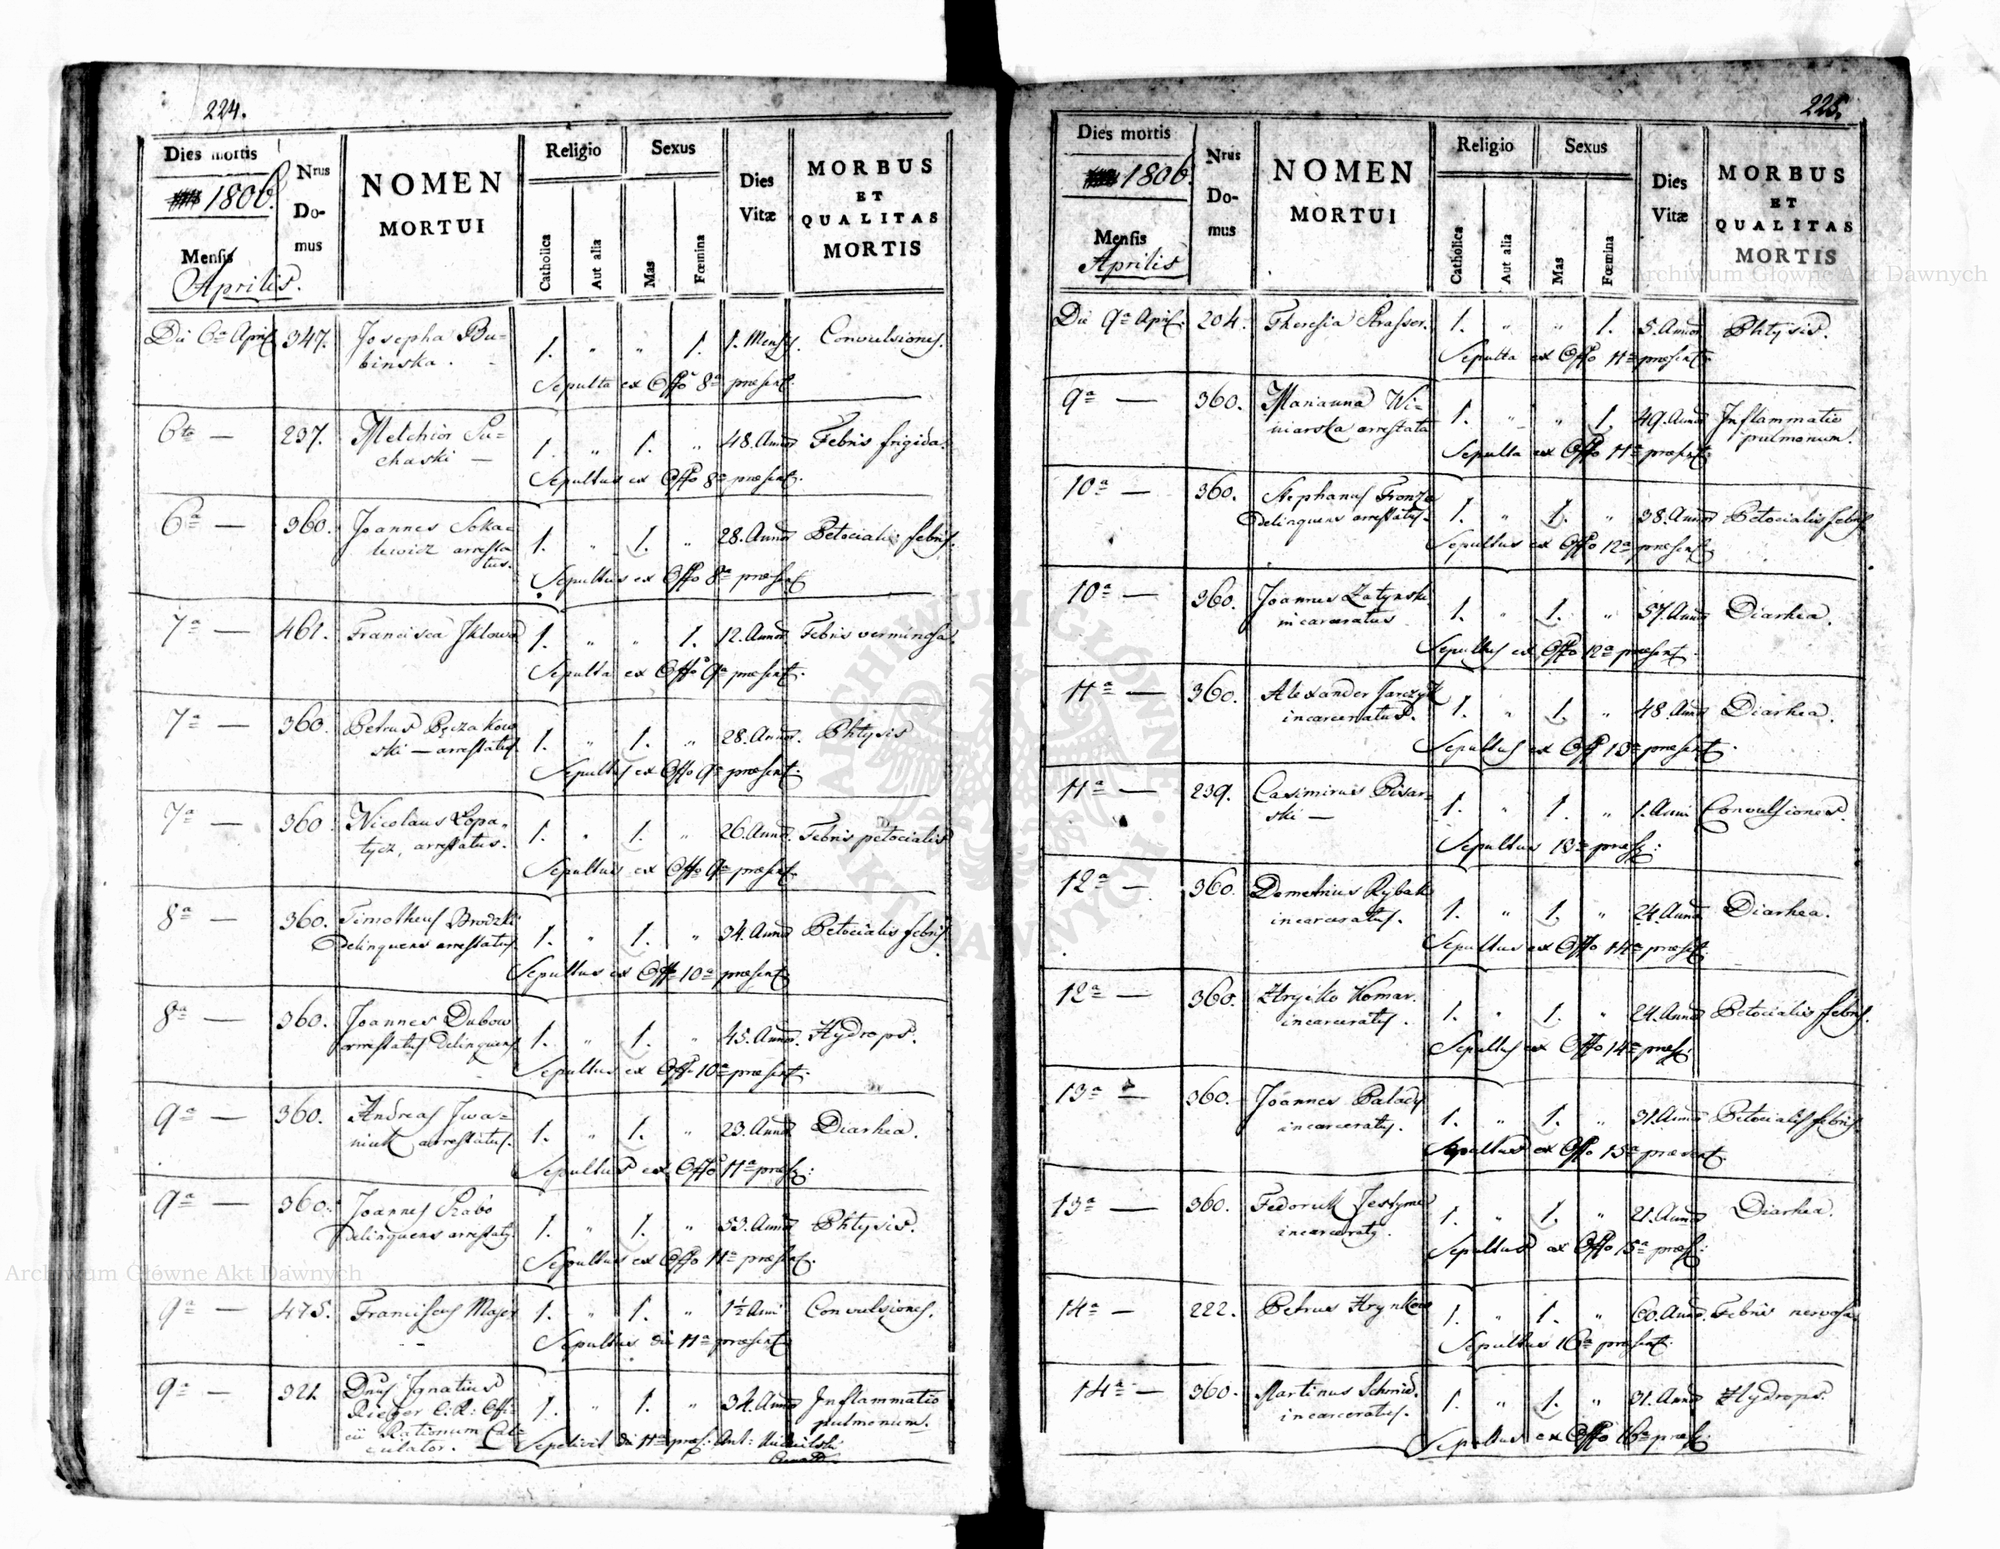 224.
Dies mortis
1806.
Mensis
Aprilis.
Nrus
Do-
mus
NOMEN
MORTUI
Religio
Catholica
Aut alia
Sexus
Mas
Fœmina
Dies
Vitæ
MORBUS
ET
QUALITAS
MORTIS
Die 6ta April. 347. Josepha Bu- 1. " " 1. 1. Mens. Convulsiones.
binska.
Sepulta ex Offo 8a præsent.
6ta — 237. Melchior Su- 1. " 1. " 48. Annor Febris frigida.
chaski —
Sepultus ex Offo 8a præsent.
6a — 360. Joannes Soka- 1. " 1. " 28. Annor Petocialis febris.
lewicz arresta
tus.
Sepultus ex Offo 8a præsent
7a — 461. Francisca 1. " " 1. 12. Annor. Febris verminosa
Sepulta ex Offo 9a præsent.
7a — 360. Petrus Pęczakow 1. " 1. " 28. Annor. Phtysis
ski — arrestatus.
Sepultus ex Offo 9a præsent.
7a — 360 Nicolaus Lopa- 1. " 1. " 26. Annor. Febris petocialis
tycz, arrestatus.
Sepultus ex Offo 9a præsent.
8a — 360. Timotheus Brodzki 1. " 1. " 34. Annor Petocialis febris.
Delinquens arrestatus.
Sepultus ex Offo 10a præsent
8a — 360. Joannes Dubow 1. " 1. " 45. Annor. Hydrops.
arrestatus Delinquens
Sepultus ex Offo 10a præsent.
9a — 360. Andreas Iwa- 1. " 1. " 23. Annor Diarhea.
niuk arrestatus.
Sepultus ex Offo 11a præs:
9a — 360. Joannes Szabo 1. " 1. " 53. Annor Phtysis.
Delinquens arrestatus.
Sepultus ex Offo 11a præsent.
9a — 475. Franciscus Major 1. " 1. " 1½ Anni Convulsiones.
Sepultus die 11a præsent
9a — 321 Dnus Ignatius 1. " 1. " 34. Annor Inflammatio
Rieger C: R: Offi- pulmonum.
cii Rationum Cal-
culator.
Sepelivit die 11a præs: Ant:
225.
Dies mortis
1806.
Mensis
Aprilis
Nrus
Do-
mus
NOMEN
MORTUI
Religio
Catholica
Aut alia
Sexus
Mas
Fœmina
Dies
Vitæ
MORBUS
ET
QUALITAS
MORTIS
Die 9a April. 204. Theresia Strasser. 1. " " 1. 5. Annor Phtysis.
Sepulta ex Offo 11a præsent
9a — 360. Marianna Wi- 1. " " 1. 49. Annor Inflammatio
niarska arrestata pulmonum.
Sepulta ex Offo 11a præsent.
10a — 360. Stephanus 1. " 1. " 38. Annor Petocialis febris
Delinquens arrestatus.
Sepultus ex Offo 12a præsent.
10a — 360. Joannes Zatynski 1. " 1. " 57. Annor Diarhea.
incarceratus
Sepultus ex Offo 12a præsent.
11a — 360. Alexander Jarczyk 1. " 1. " 48. Annor Diarhea.
incarceratus.
Sepultus ex Off 13a præsent.
11a — 239. Casimirus Pisar- 1. " 1. " 1. Anni Convulsiones.
ski —
Sepultus 13a præs:
12a — 360. Demetrius Rybak 1. " 1. " 24. Annor Diarhea.
incarceratus.
Sepultus ex Offo 14a præsent.
12a — 360. Hryćko Komar. 1. " 1. " 24. Annor Petocialis febris.
incarceratus.
Sepultus ex Offo 14a præs:
13a — 360. Joannes Palady 1. " 1. " 31. Annor Petocialis febris.
incarceratus.
Sepultus ex Offo 15a præsent.
13a — 360. Fedoruk 1. " 1. " 21. Annor Diarhea.
incarceratus.
Sepultus ex Offo 15a præs:
14a — 222. Petrus Hrynkow 1. " 1. " 60. Annor. Febris nervosa
Sepultus 16a præsent.
14a — 360. Martinus Schmid. 1. " 1. " 31. Annor Hydrops.
incarceratus.
Sepultus ex Offo 16a præs:
Archiwum Główne Akt Dawnych
Archiwum Główne Akt Dawnych
ARCHIWUM GŁÓWNE AKT DAWNYCH